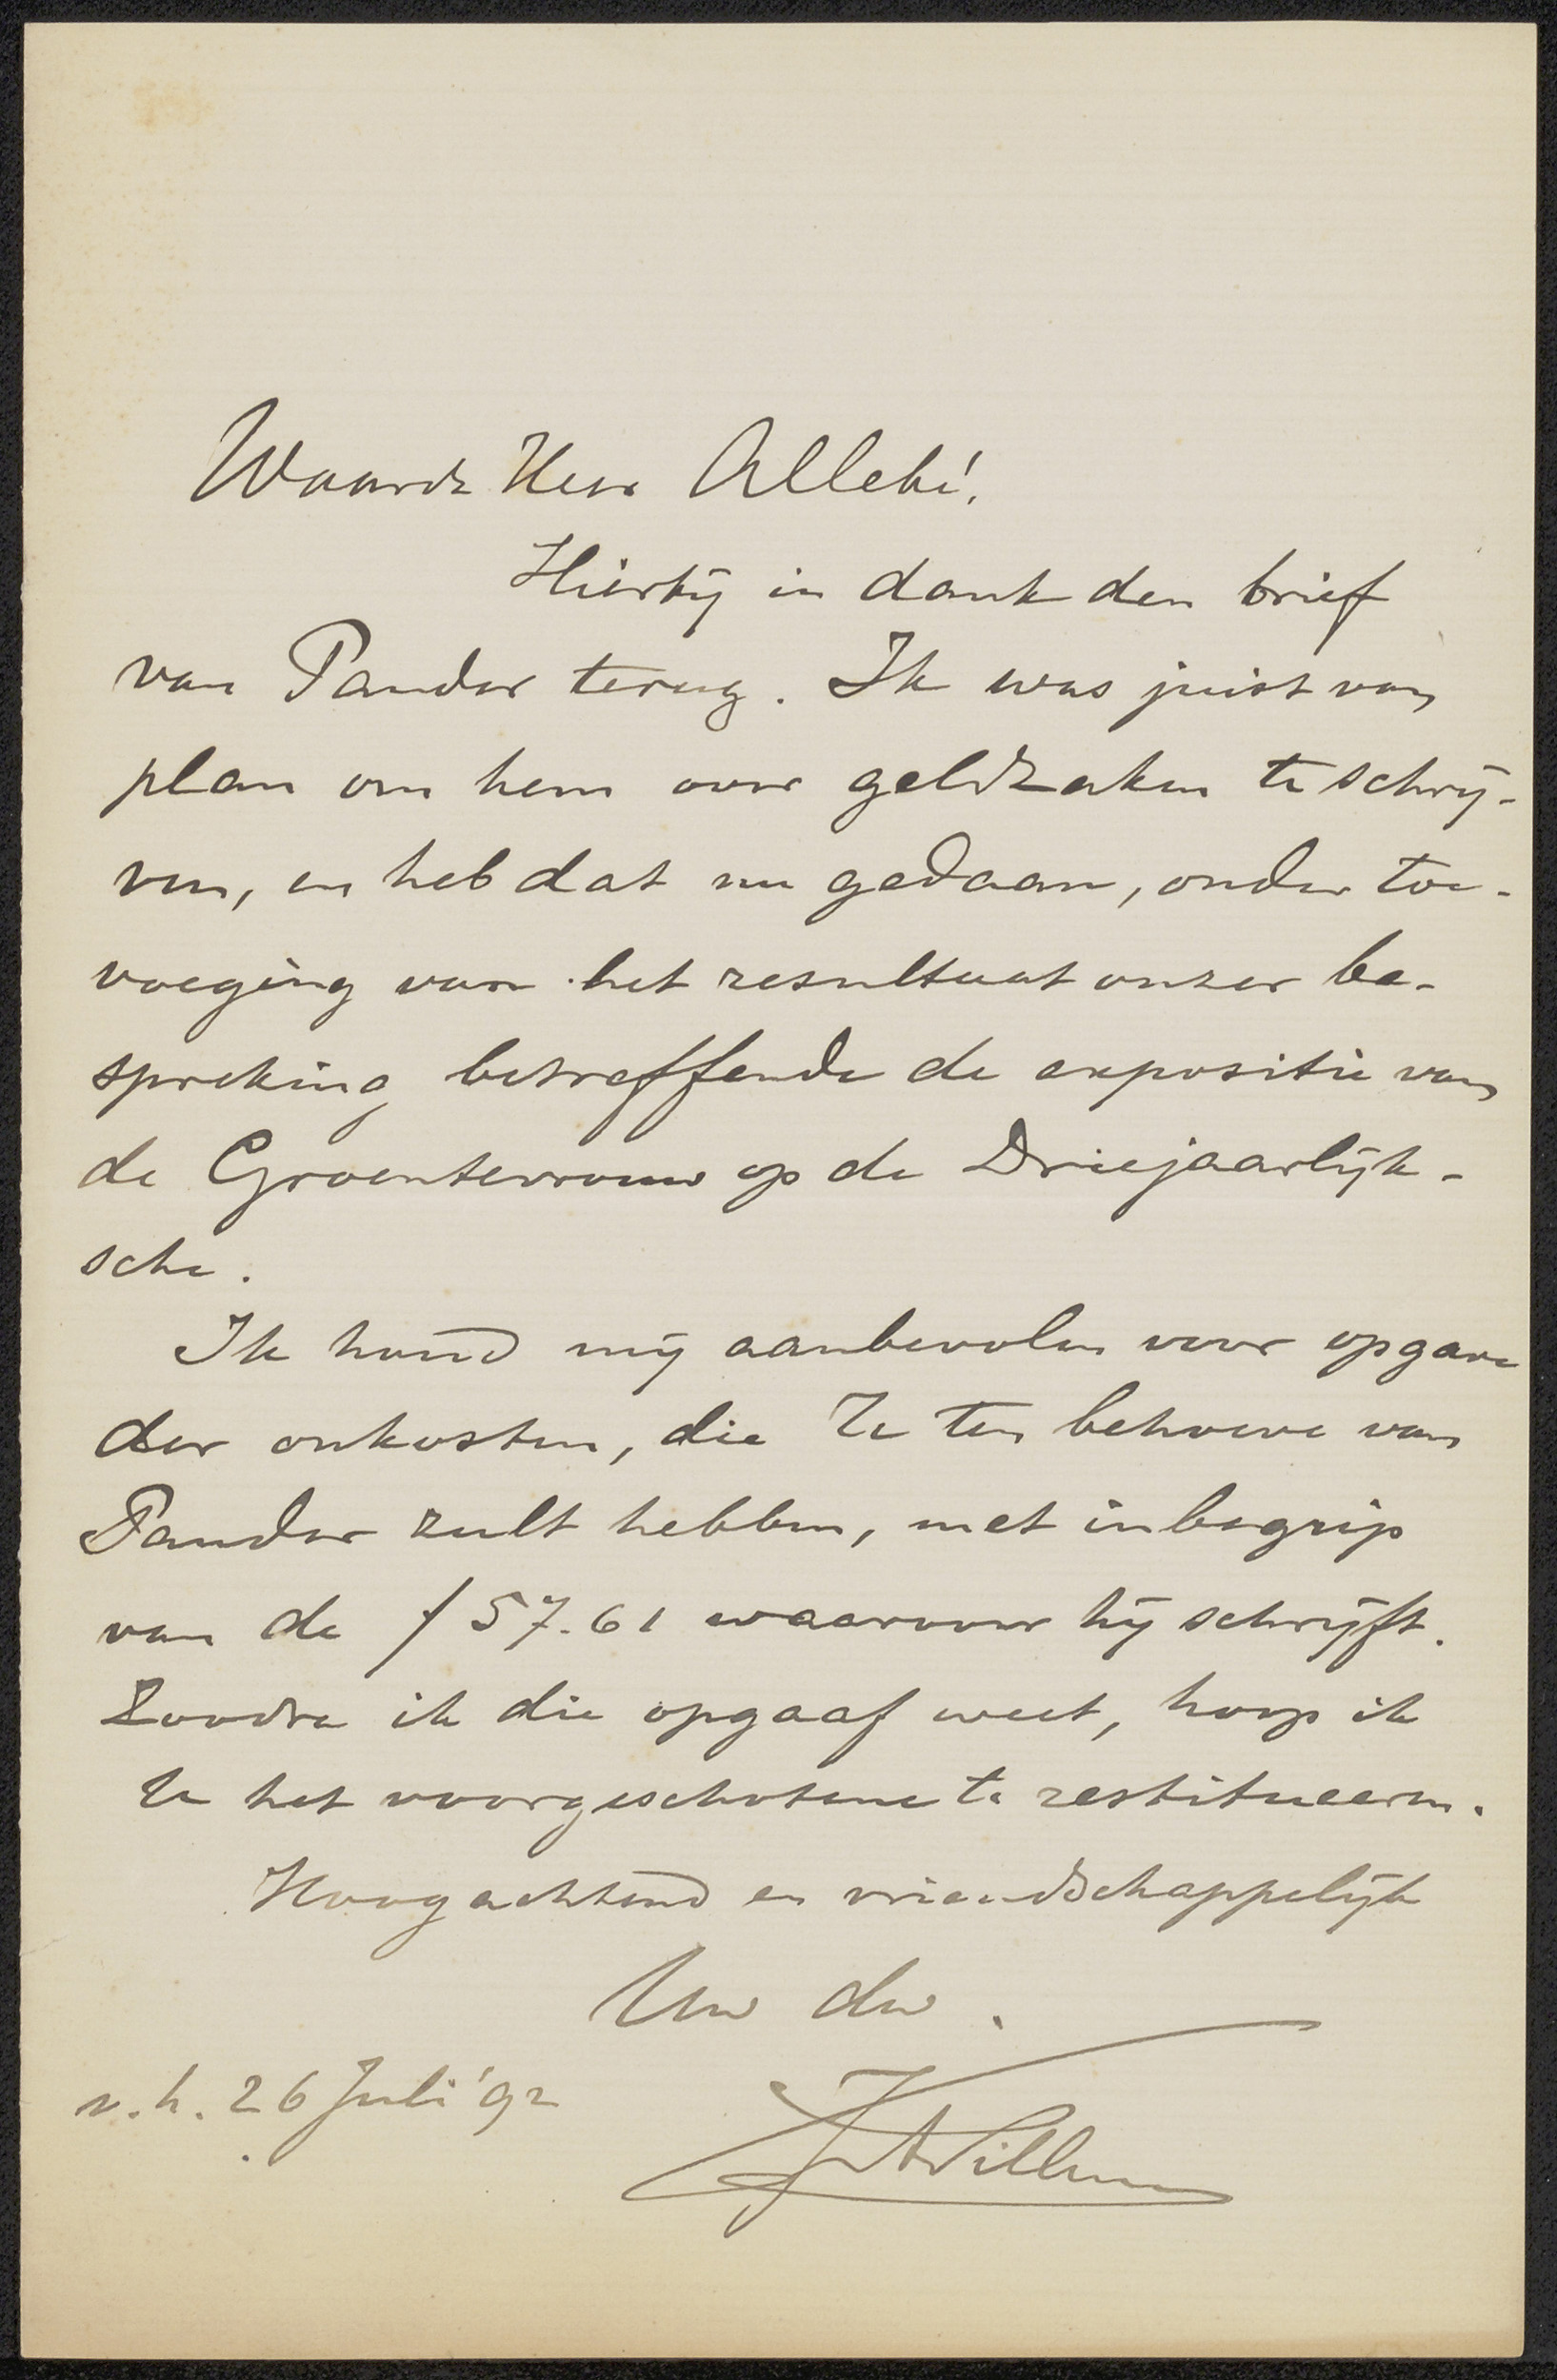 Waarde Heer Allebé!
Hierbij in dank den brief
van Pander terug. Ik was juist van
plan om hem over geldzaken te schrij-
ven, en heb dat nu gedaan, onder toe-
voeging van het resultaat onzer be-
spreking betreffende de expositie van
de Groentevrouw op de Driejaarlijk-
sche.
Ik houd mij aanbevolen voor opgave
der onkosten, die U ten behoeve van
Pander zult hebben, met inbegrip
van de f 57.61 waarover hij schrijft.
Zoodra ik die opgaaf weet, hoop ik
U het voorgeschotene te restitueeren.
Hoogachtend en vriendschappelijk
Uw dw.
v.h. 26 Juli '92